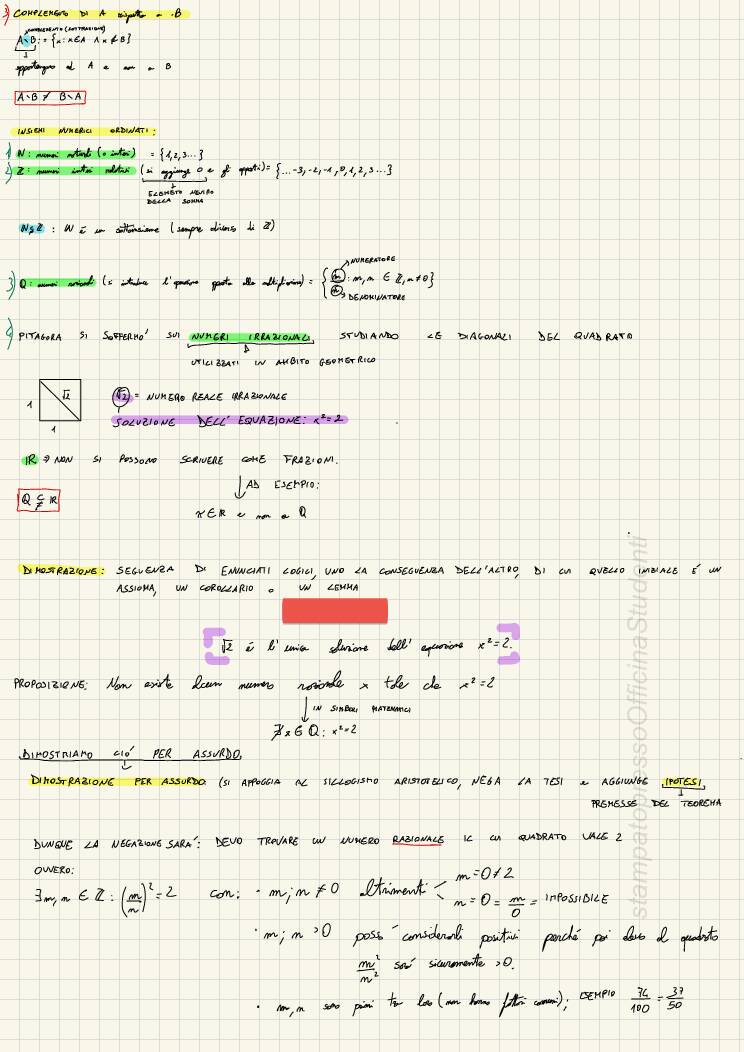 3) COMPLEMENTO DI A rispetto a B
COMPLEMENTO (SOTTRAZIONE)
A∖B := {x: x ∈ A ∧ x ∉ B}
appartengono ad A e non a B
A∖B ≠ B∖A
INSIEMI NUMERICI ORDINATI:
1) N: numeri naturali (o interi) = {1,2,3...}
2) Z: numeri interi relativi (si aggiunge 0 e gli opposti) = {...-3,-2,-1,0,1,2,3...}
ELEMENTO NEUTRO
DELLA SOMMA
N⊊Z : N è un sottoinsieme (sempre diverso di Z)
NUMERATORE
3) Q: numeri razionali (si introduce l'operazione opposta alla moltiplicazione) = {m/n : m,n ∈ Z, n≠0}
DENOMINATORE
4) PITAGORA SI SOFFERMO' SUI NUMERI IRRAZIONALI STUDIANDO LE DIAGONALI DEL QUADRATO
UTILIZZATI IN AMBITO GEOMETRICO
1 √2 √2 = NUMERO REALE IRRAZIONALE
SOLUZIONE DELL'EQUAZIONE: x²=2
1
IR → NON SI POSSONO SCRIVERE COME FRAZIONI.
AD ESEMPIO:
Q ⊊ IR
x ∈ IR e non a Q
DIMOSTRAZIONE: SEQUENZA DI ENUNCIATI LOGICI, UNO LA CONSEGUENZA DELL'ALTRO, DI CUI QUELLO INIZIALE É UN
ASSIOMA, UN COROLLARIO o UN LEMMA
√2 é l'unica soluzione dell'equazione x²=2.
PROPOSIZIONE: Non esiste alcun numero razionale x tale che x²=2
IN SIMBOLI MATEMATICI
∄x ∈ Q: x²=2
DIMOSTRIAMO CIO' PER ASSURDO
DIMOSTRAZIONE PER ASSURDO (SI APPOGGIA AL SILLOGISMO ARISTOTELICO, NEGA LA TESI e AGGIUNGE IPOTESI
PREMESSE DEL TEOREMA
DUNQUE LA NEGAZIONE SARA': DEVO TROVARE UN NUMERO RAZIONALE IL CUI QUADRATO VALE 2
OVVERO:
∃m,n ∈ Z: (m/n)²=2 con: · m;n ≠0 altrimenti m=0≠2
n=0= m/0 = IMPOSSIBILE
· m;n >0 posso considerarli positivi perché poi elevo al quadrato
m²/n² sarà sicuramente >0.
· m,n sono primi tra loro (non hanno fattori comuni); ESEMPIO 74/100 = 37/50
stampatopressoOfficinaStudenti